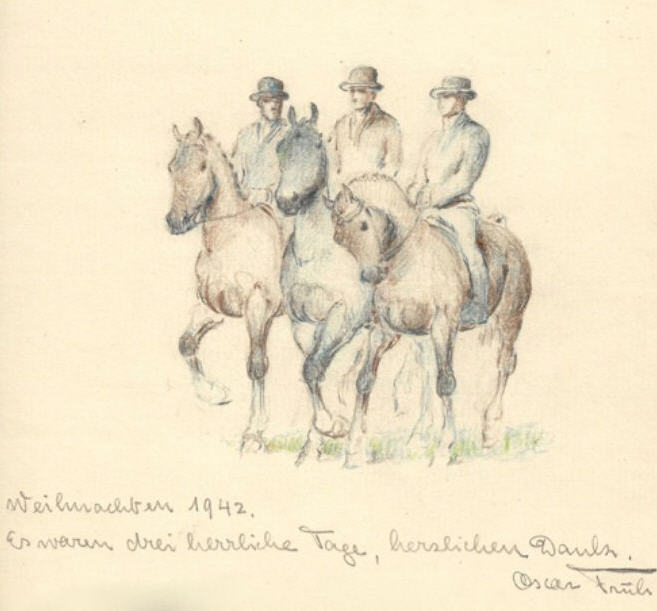 Weihnachten 1942.
Es waren drei herrliche Tage, herzlichen Dank.
Oscar Früh